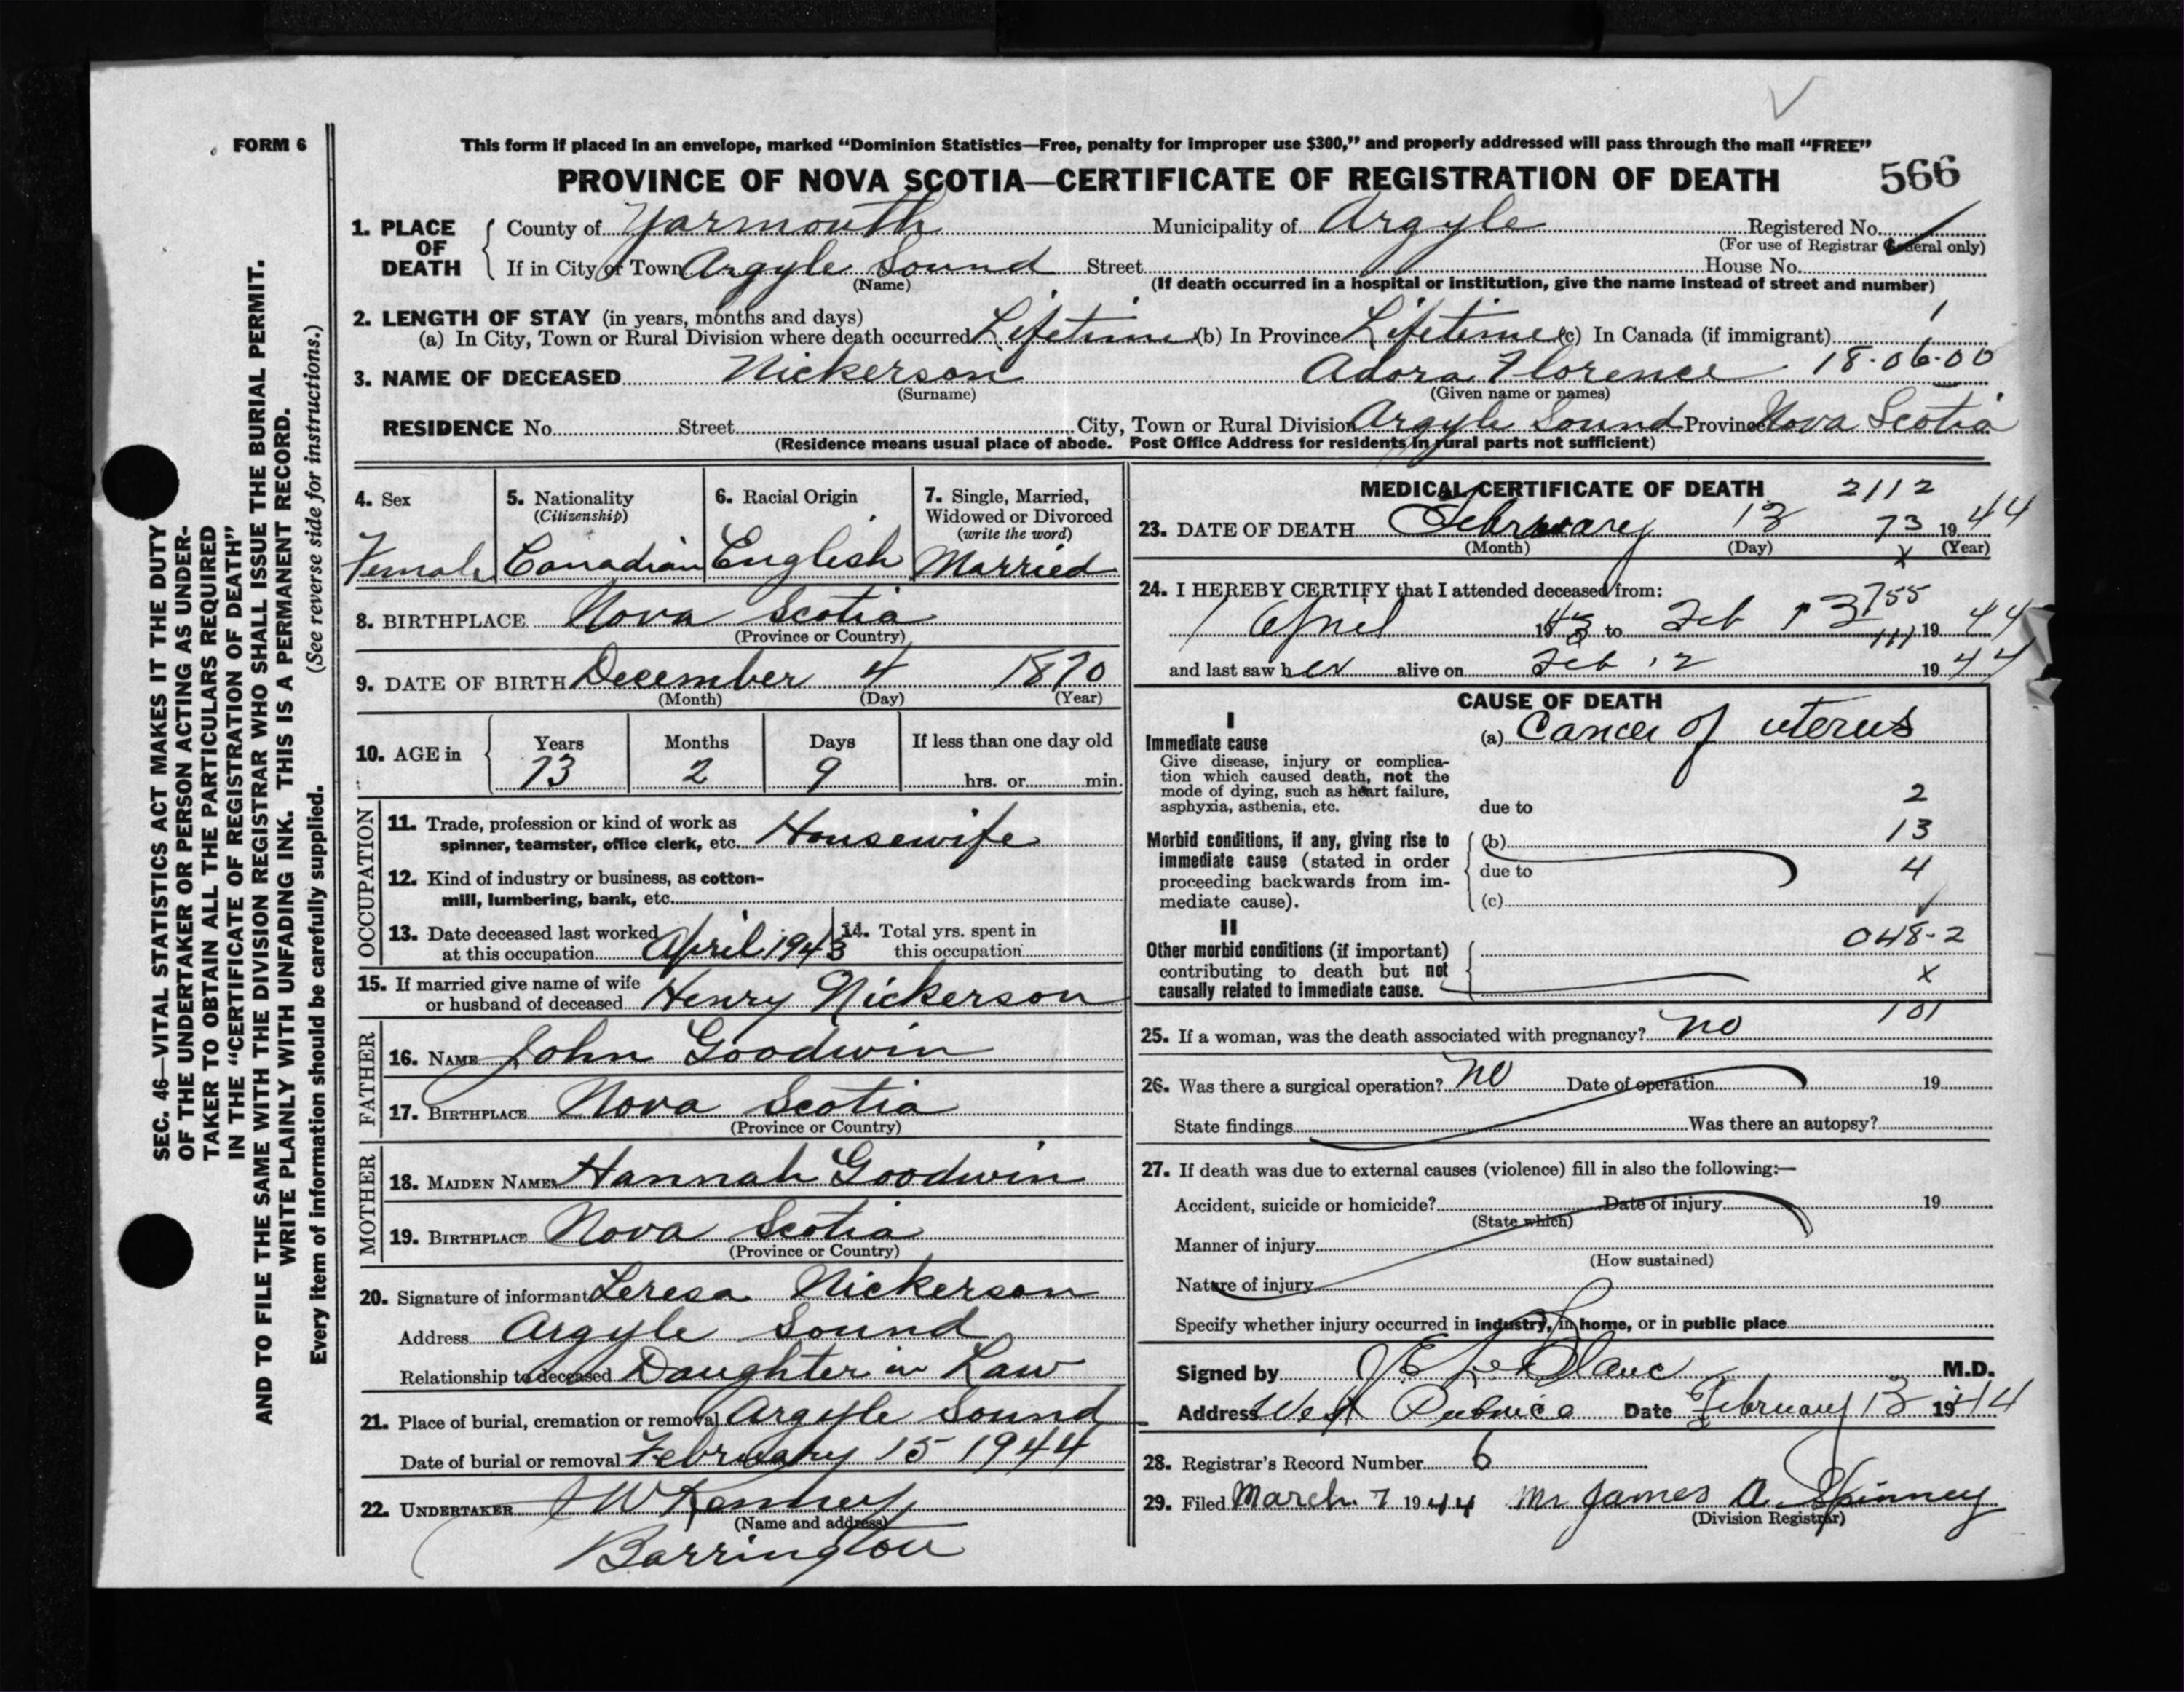 FORM 6
This form if placed in an envelope, marked "Dominion Statistics—Free, penalty for improper use $300," and properly addressed will pass through the mail "FREE"
PROVINCE OF NOVA SCOTIA—CERTIFICATE OF REGISTRATION OF DEATH 566
1. PLACE OF DEATH
County of Yarmouth Municipality of Argyle Registered No.
(For use of Registrar General only)
If in City or Town Argyle Sound Street House No.
(Name) (If death occurred in a hospital or institution, give the name instead of street and number)
2. LENGTH OF STAY (in years, months and days)
(a) In City, Town or Rural Division where death occurred Lifetime (b) In Province Lifetime (c) In Canada (if immigrant)
3. NAME OF DECEASED Nickerson Adora Florence 18-06-00
(Surname) (Given name or names)
RESIDENCE No. Street City, Town or Rural Division Argyle Sound Province Nova Scotia
(Residence means usual place of abode. Post Office Address for residents in rural parts not sufficient)
4. Sex
Female
5. Nationality
(Citizenship)
Canadian
6. Racial Origin
English
7. Single, Married,
Widowed or Divorced
(write the word)
Married
8. BIRTHPLACE Nova Scotia
(Province or Country)
9. DATE OF BIRTH December 4 1870
(Month) (Day) (Year)
10. AGE in
Years Months Days If less than one day old
73 2 9 hrs. or min.
OCCUPATION
11. Trade, profession or kind of work as
spinner, teamster, office clerk, etc. Housewife
12. Kind of industry or business, as cotton-
mill, lumbering, bank, etc.
13. Date deceased last worked
at this occupation April 1943
14. Total yrs. spent in
this occupation
15. If married give name of wife
or husband of deceased Henry Nickerson
FATHER
16. NAME John Goodwin
17. BIRTHPLACE Nova Scotia
(Province or Country)
MOTHER
18. MAIDEN NAME Hannah Goodwin
19. BIRTHPLACE Nova Scotia
(Province or Country)
20. Signature of informant Leresa Nickerson
Address Argyle Sound
Relationship to deceased Daughter in Law
21. Place of burial, cremation or removal Argyle Sound
Date of burial or removal February 15 1944
22. UNDERTAKER
(Name and address)
Barrington
MEDICAL CERTIFICATE OF DEATH 2112
23. DATE OF DEATH February 13 73 1944
(Month) (Day) x (Year)
24. I HEREBY CERTIFY that I attended deceased from:
755
1 April 1943 to Feb 13 1944
111
and last saw her alive on Feb 12 1944
CAUSE OF DEATH
I
Immediate cause
Give disease, injury or complica-
tion which caused death, not the
mode of dying, such as heart failure,
asphyxia, asthenia, etc.
(a) Cancer of uterus
due to 2
Morbid conditions, if any, giving rise to
immediate cause (stated in order
proceeding backwards from im-
mediate cause).
(b) 13
due to 4
(c)
II
Other morbid conditions (if important)
contributing to death but not
causally related to immediate cause.
048-2
x
101
25. If a woman, was the death associated with pregnancy? no
26. Was there a surgical operation? no Date of operation 19
State findings Was there an autopsy?
27. If death was due to external causes (violence) fill in also the following:—
Accident, suicide or homicide? Date of injury 19
(State which)
Manner of injury
(How sustained)
Nature of injury
Specify whether injury occurred in industry, in home, or in public place
Signed by J E LeBlanc M.D.
Address West Pubnico Date February 13 1944
28. Registrar's Record Number 6
29. Filed March 7 1944 Mr James A. Spinney
(Division Registrar)
SEC. 46—VITAL STATISTICS ACT MAKES IT THE DUTY
OF THE UNDERTAKER OR PERSON ACTING AS UNDER-
TAKER TO OBTAIN ALL THE PARTICULARS REQUIRED
IN THE "CERTIFICATE OF REGISTRATION OF DEATH"
AND TO FILE THE SAME WITH THE DIVISION REGISTRAR WHO SHALL ISSUE THE BURIAL PERMIT.
WRITE PLAINLY WITH UNFADING INK. THIS IS A PERMANENT RECORD.
Every item of information should be carefully supplied. (See reverse side for instructions.)